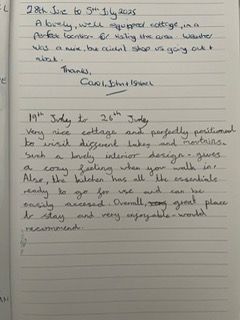 28th June to 5th July 2025
A lovely, well equipped cottage, in a
perfect location for visiting the area. Weather
was a mix, but didn't stop us going out +
about.
Thanks,
Carol, John +
19th July to 26th July
Very nice cottage and perfectly positioned
to visit different lakes and montains.
Such a lovely interior design - gives
a cosy feeling when you walk in.
Also, the kitchen has all the essentials
ready to go for use and can be
easily accessed. Overall, great place
to stay and very enjoyable - would
recommend.